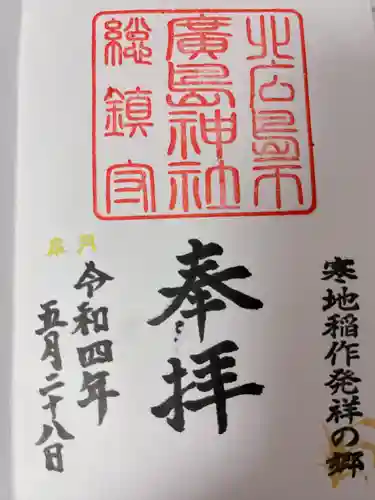 北広島市
廣島神社
総鎮守
寒地稲作発祥の郷
奉拝
令和四年
五月二十八日